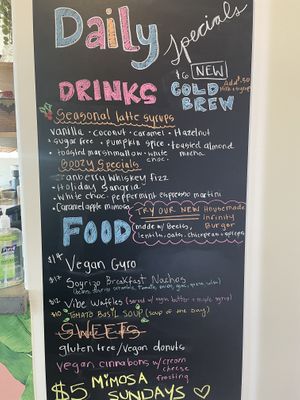 Daily
Specials
DRINKS
$6 NEW
COLD
BREW
Add $.50
Seasonal latte syrups
vanilla • coconut • caramel • Hazelnut
• sugar free • pumpkin spice • toasted almond
• toasted marshmallow • white choc. mocha
Boozy Specials
cranberry whiskey fizz
• Holiday Sangria
• White choc. peppermint espresso martini
Caramel apple mimosa
TRY OUR NEW Housemade
infinity
Burger
made w/ Beets,
lentils, oats, chickpeas + spices
FOOD
$14 Vegan Gyro
Soyrizo Breakfast Nachos
$12 Vibe Waffles (served w/ vegan butter + maple syrup)
TOMATO BASIL SOUP (soup of the Day)
SWEETS
gluten free/vegan donuts
vegan cinnabons w/ cream
cheese
frosting
$5 MIMOSA
SUNDAYS